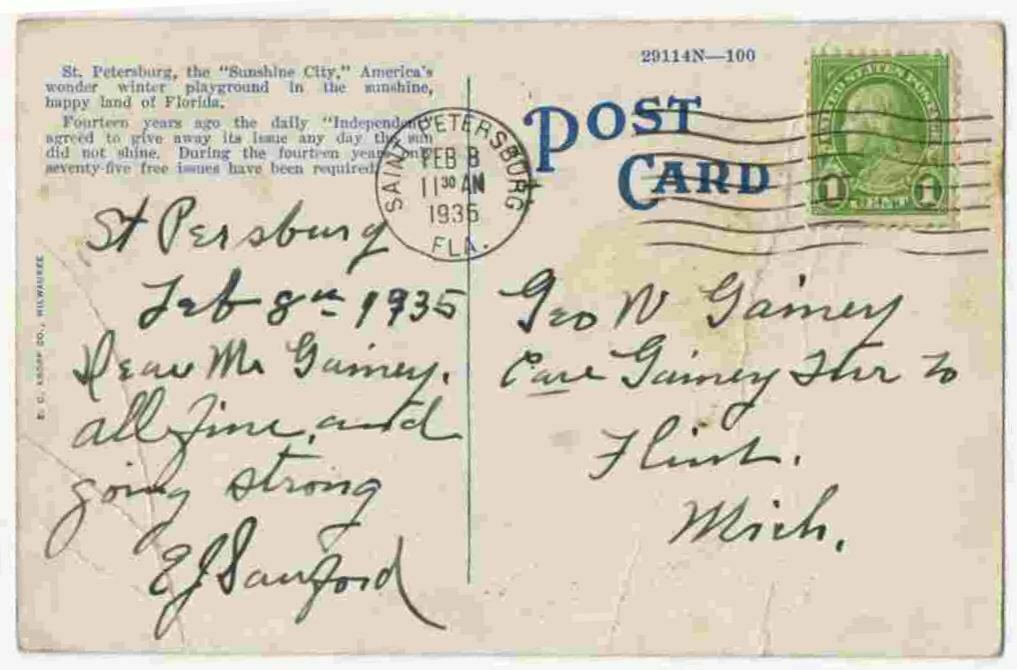 29114N—100
St. Petersburg, the "Sunshine City," America's
wonder winter playground in the sunshine,
happy land of Florida.
Fourteen years ago the daily "Independent"
agreed to give away its issue any day the sun
did not shine. During the fourteen years only
seventy-five free issues have been required.
POST
CARD
SAINT PETERSBURG
FEB 8
11 30 AM
1935
FLA.
UNITED STATES POSTAGE
1 CENT 1
E. C. KROPP CO., MILWAUKEE
St Persburg
Feb 8th 1935
Dear Mr Gainey.
all fine, and
going strong
EJ Sanford
Geo W Gainey
Care Gainey Fur Co
Flint.
Mich.